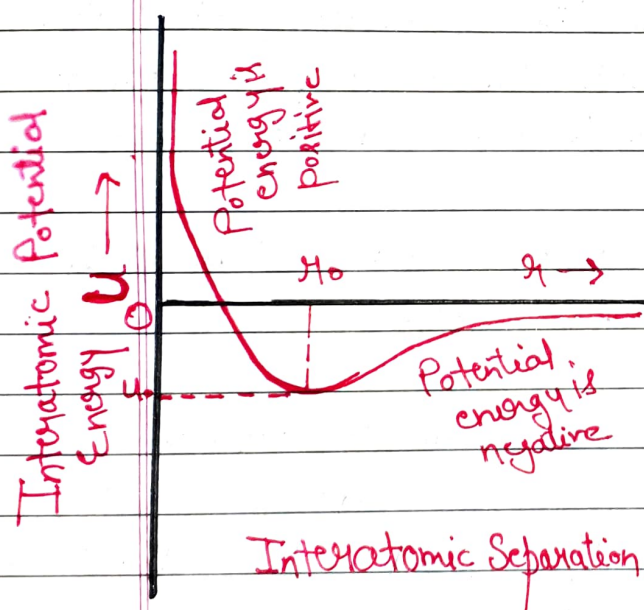 Interatomic Potential
Energy U →
Potential
energy is
positive
r₀
r →
O
E
Potential
energy is
negative
Interatomic Separation